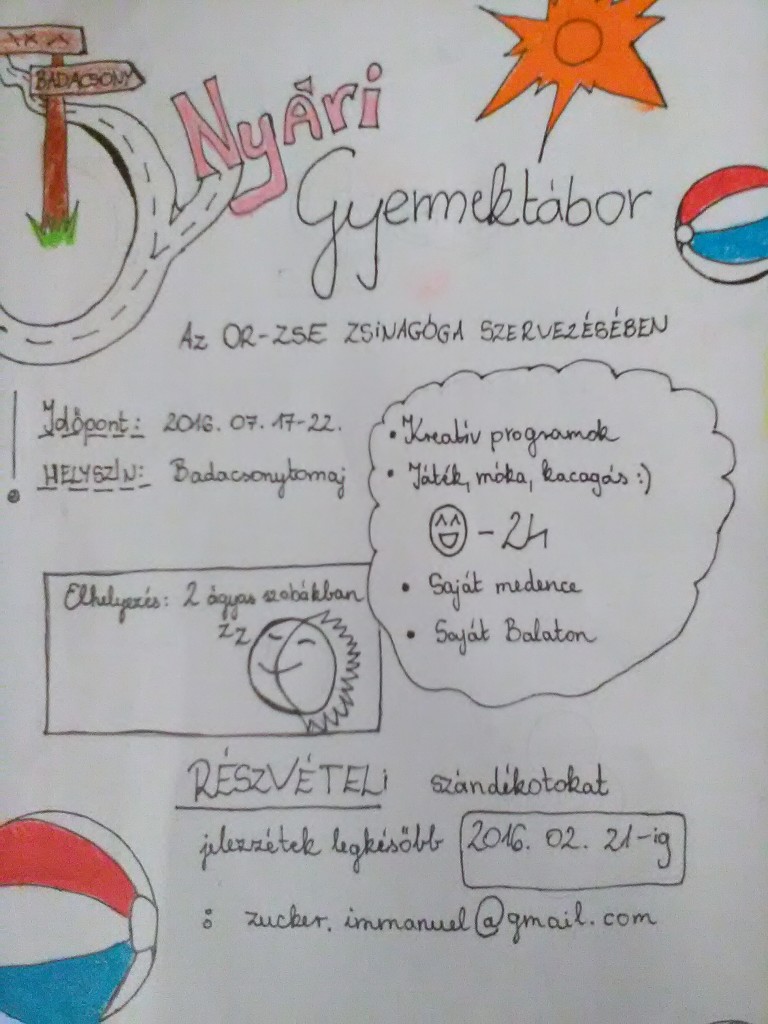 BADACSONY
Nyári
Gyermektábor
Az OR-ZSE ZSINAGÓGA SZERVEZÉSÉBEN
Időpont: 2016. 07. 17-22.
HELYSZÍN: Badacsonytomaj
• Kreatív programok
• Játék, móka, kacagás :)
- 24
• Saját medence
• Saját Balaton
Elhelyezés: 2 ágyas szobákban
zz
RÉSZVÉTELi szándékotokat
jelezzétek legkésőbb 2016. 02. 21-ig
: zucker.immanuel@gmail.com